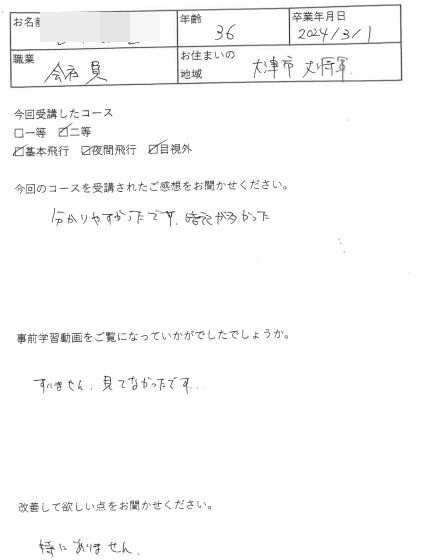 お名前 年齢 36 卒業年月日 2024/3/1
職業 会社員 お住まいの地域 大津市 大将軍
今回受講したコース
□一等 ☑二等
☑基本飛行 ☑夜間飛行 ☑目視外
今回のコースを受講されたご感想をお聞かせください。
分かりやすかったです。 が多かった
事前学習動画をご覧になっていかがでしたでしょうか。
すいません、見てなかったです...
改善して欲しい点をお聞かせください。
特にありません。